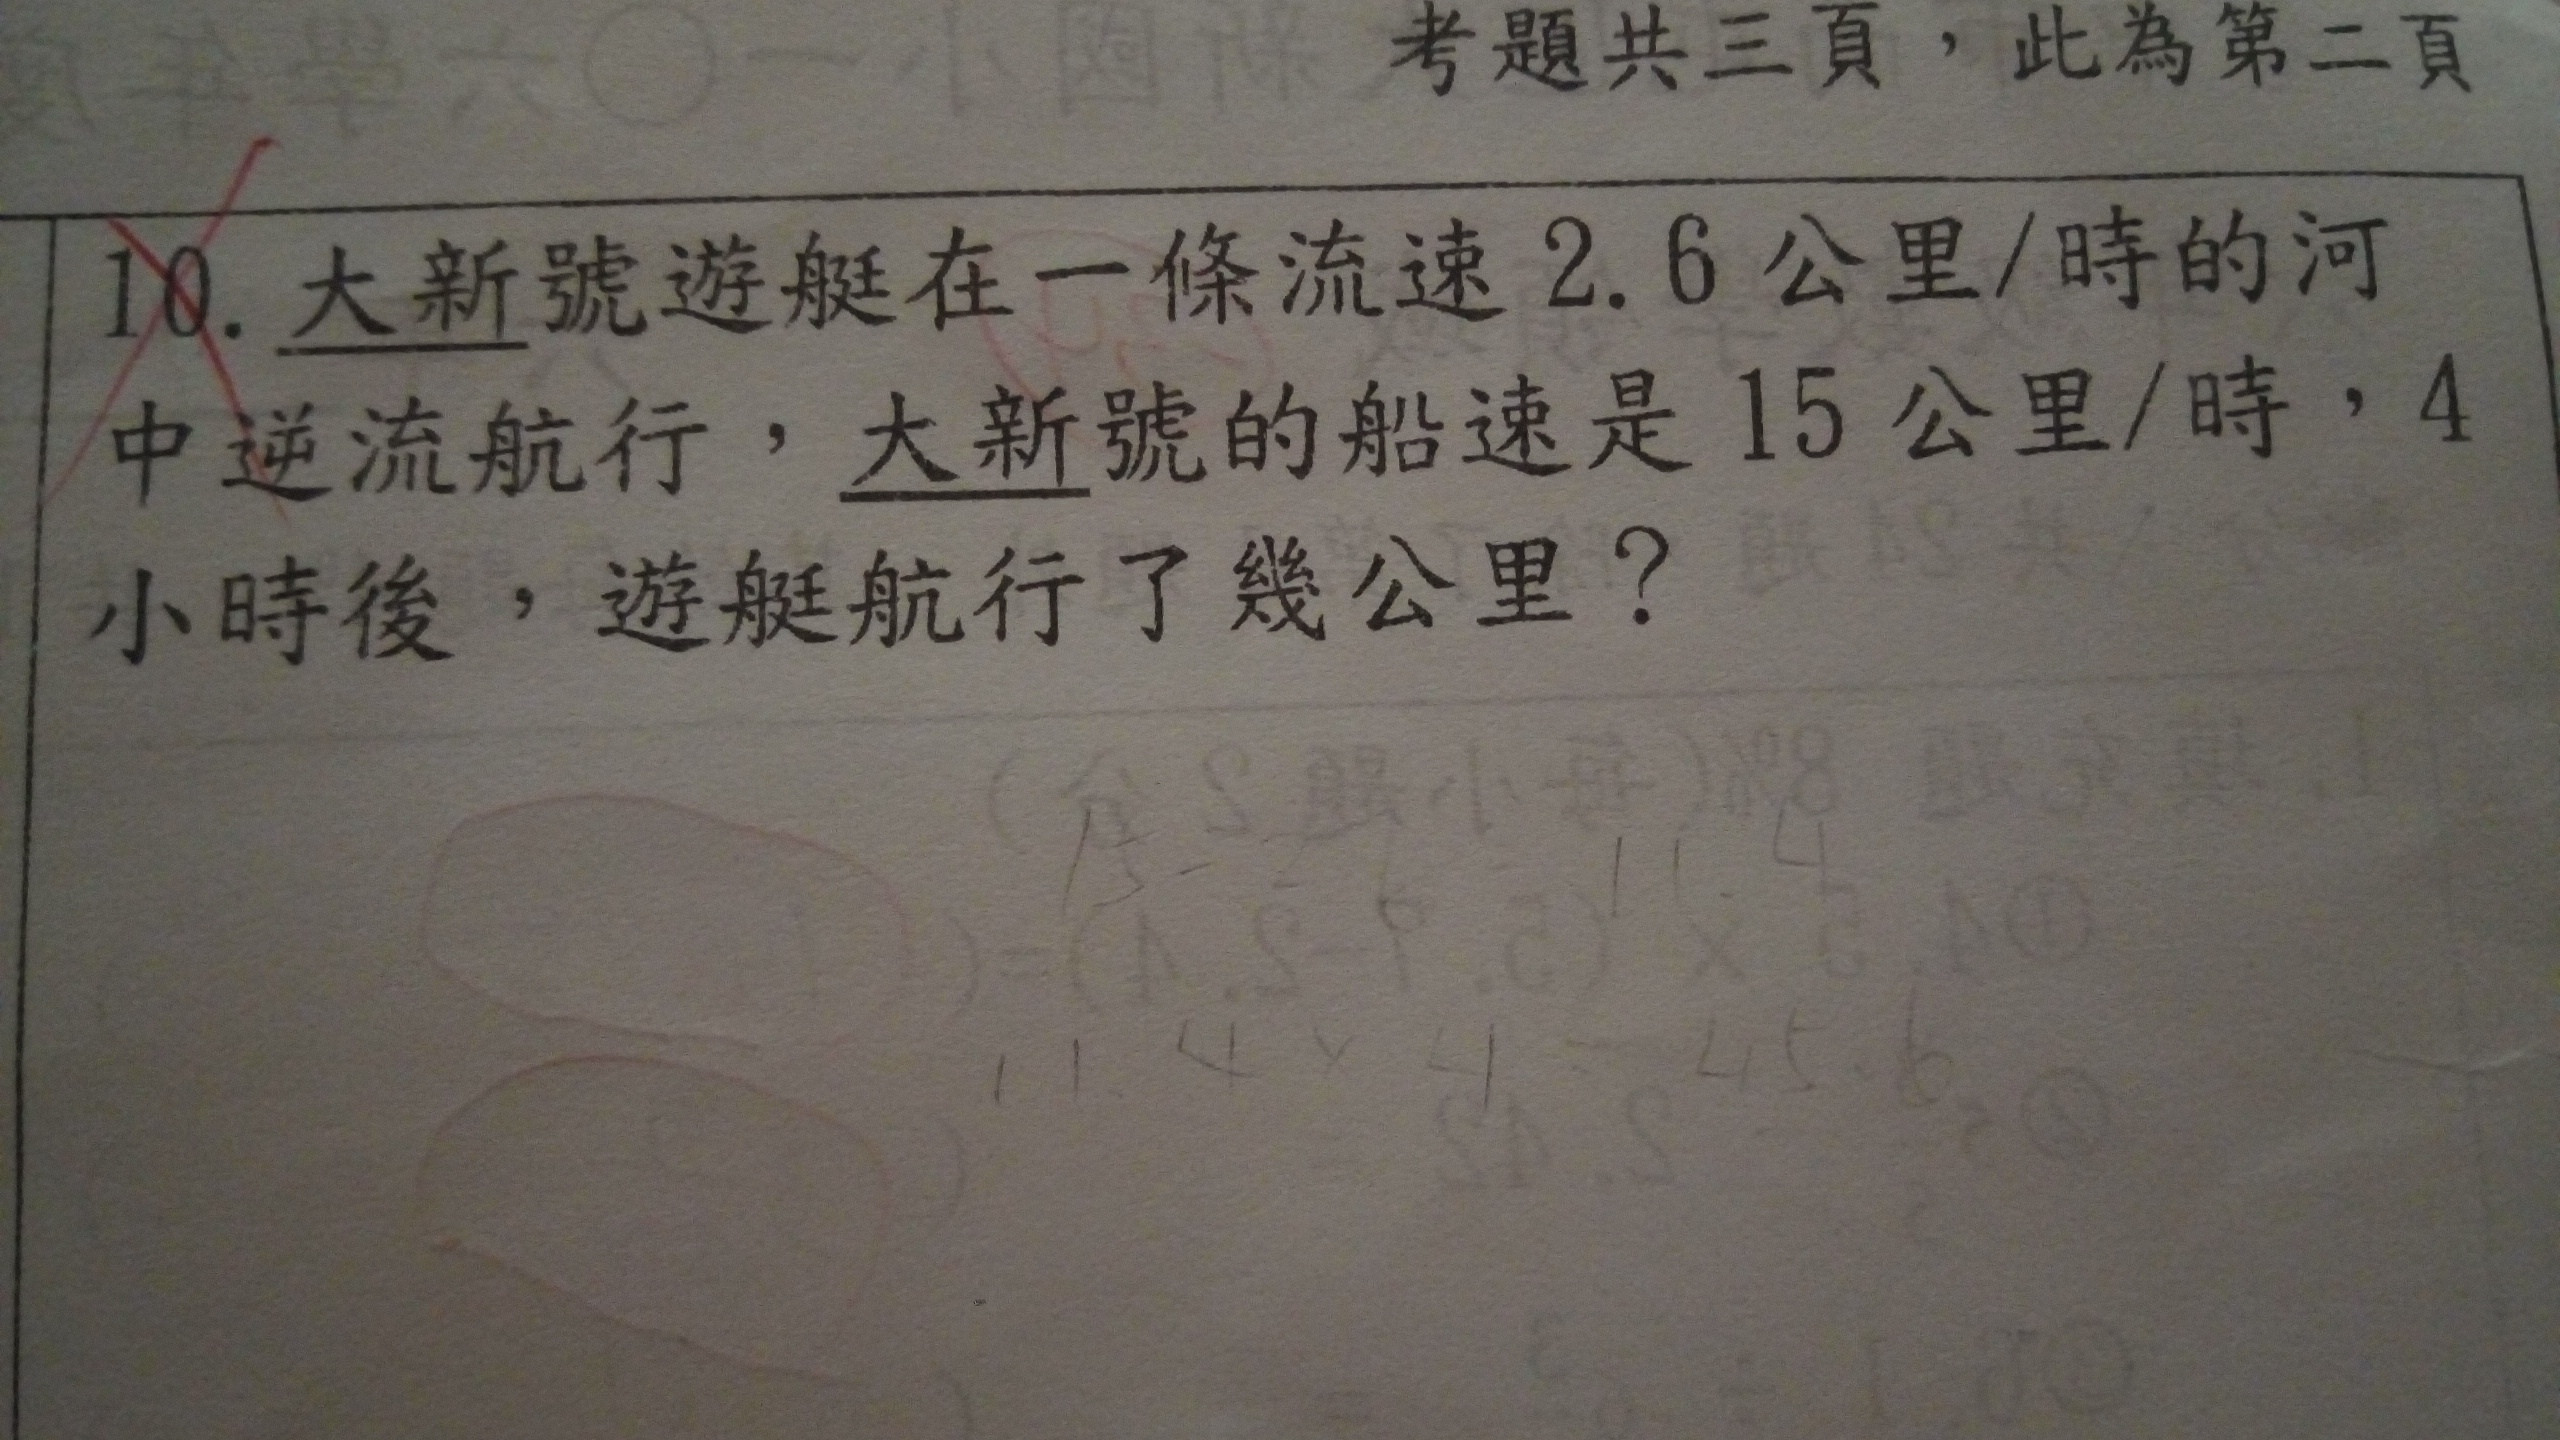 考題共三頁，此為第二頁
10. 大新號遊艇在一條流速 2.6 公里/時的河
中逆流航行，大新號的船速是 15 公里/時，4
小時後，遊艇航行了幾公里？